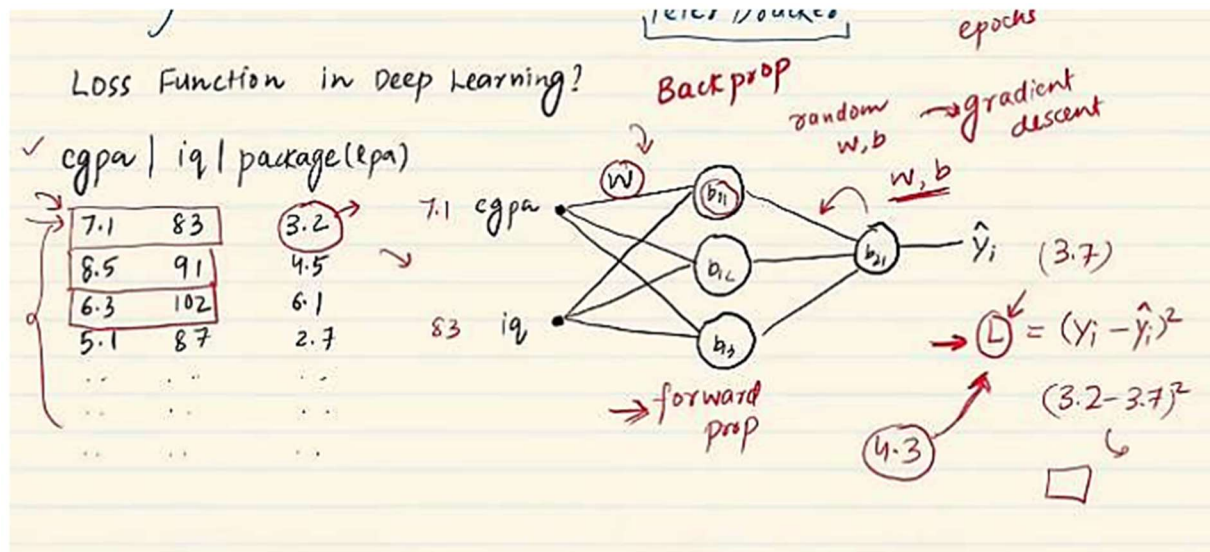 epochs
Loss Function in Deep Learning?
Backprop
random
w,b
→ gradient
descent
w,b
✓ cgpa | iq | package(lpa)
7.1 83 3.2
8.5 91 4.5
6.3 102 6.1
5.1 87 2.7
.. .. ..
.. .. ..
.. .. ..
W
7.1 cgpa
83 iq
b11
b12
b13
b21
ŷi (3.7)
L = (yi - ŷi)²
(3.2-3.7)²
4.3
→ forward
prop